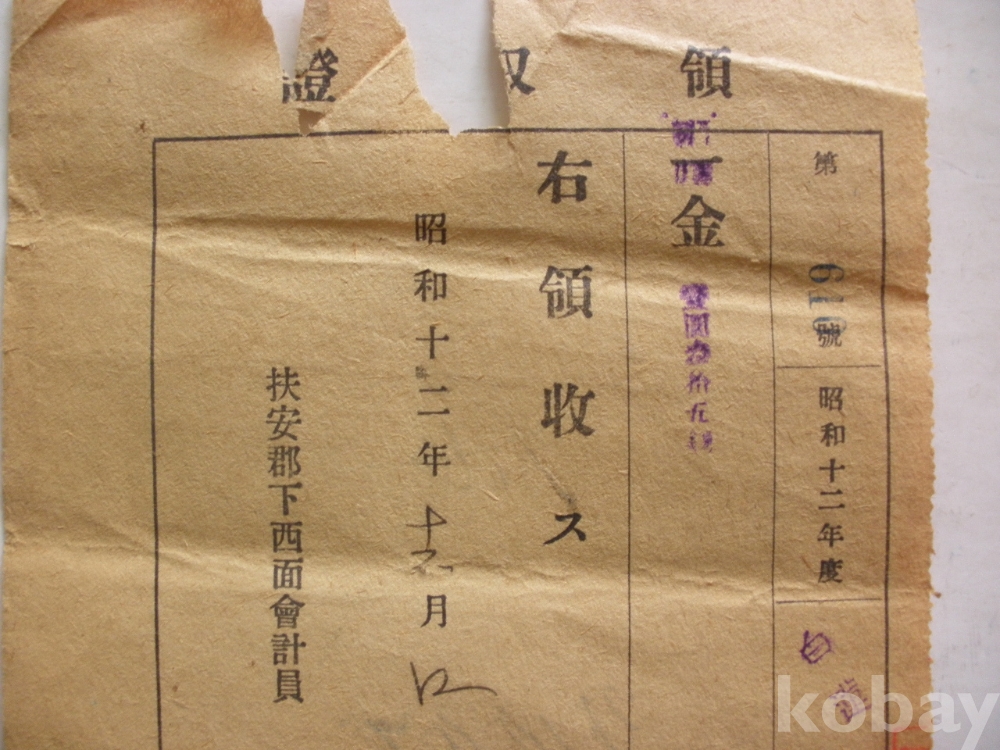 領收證
第610號
昭和十二年度
一金 壹圓參拾五錢
右領收ス
昭和十二年十 月
扶安郡下西面會計員
kobay